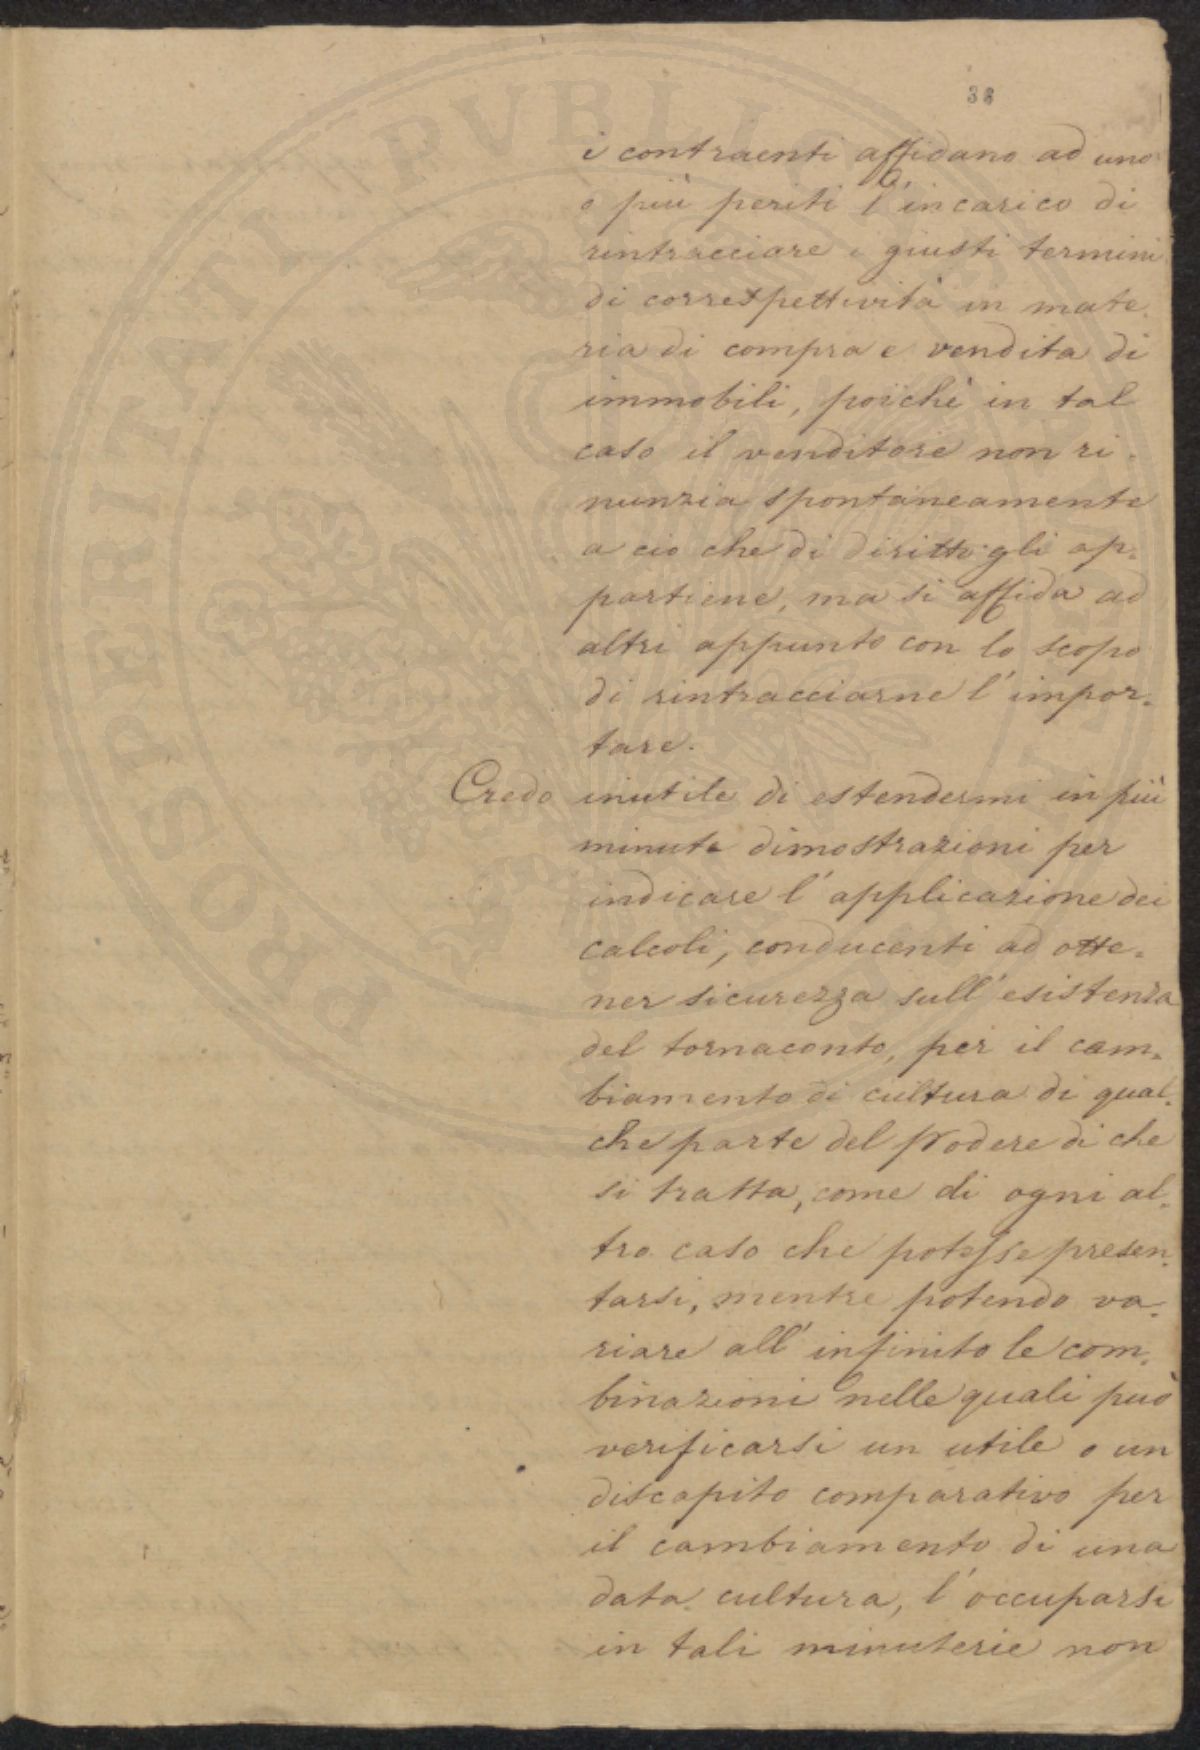 38
i contraenti affidano ad uno
o più periti l'incarico di
rintracciare i giusti termini
di correspettività in mate-
ria di compra e vendita di
immobili, poichè in tal
caso il venditore non ri-
nunzia spontaneamente
a ciò che di diritto gli ap-
partiene, ma si affida ad
altri appunto con lo scopo
di rintracciarne l'impor-
tare.
Credo inutile di estendermi in più
minute dimostrazioni per
indicare l'applicazione dei
calcoli, conducenti ad otte-
ner sicurezza sull'esistenza
del tornaconto, per il cam-
biamento di cultura di qual-
che parte del Podere di che
si tratta, come di ogni al-
tro caso che potesse presen-
tarsi, mentre potendo va-
riare all'infinito le com-
binazioni nelle quali può
verificarsi un utile o un
discapito comparativo per
il cambiamento di una
data cultura, l'occuparsi
in tali minuterie non
PROSPERITATI PVBLICAE